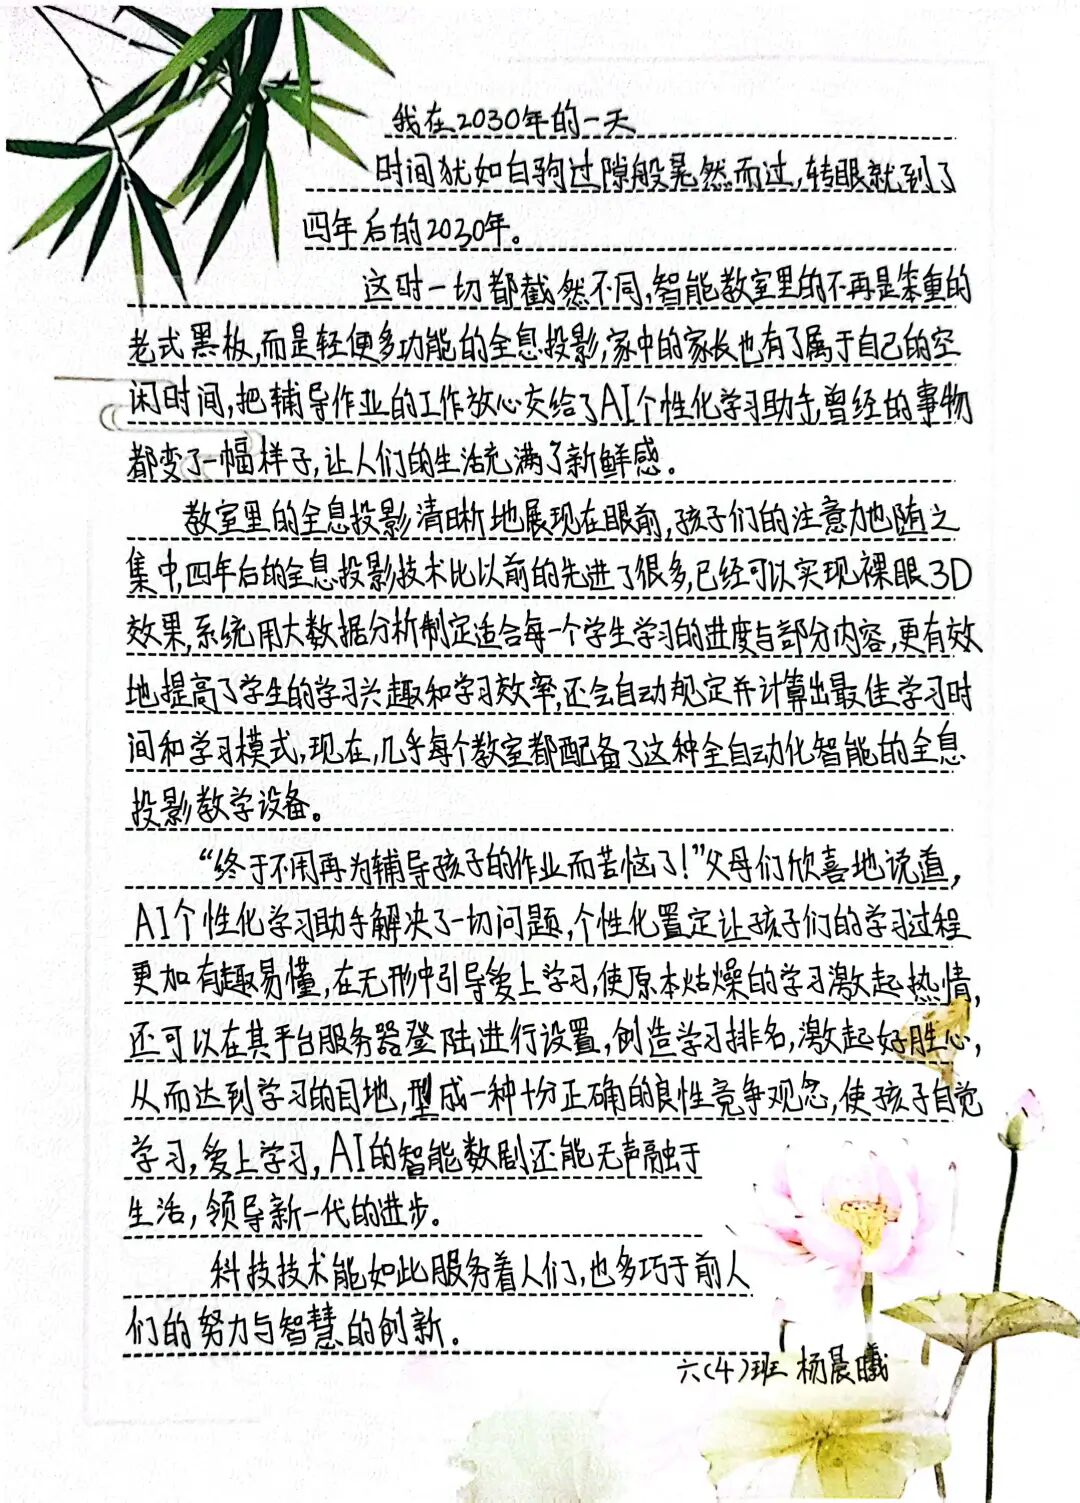 我在2030年的一天
时间犹如白驹过隙般晃然而过,转眼就到了
四年后的2030年。
这时一切都截然不同,智能教室里的不再是笨重的
老式黑板,而是轻便多功能的全息投影,家中的家长也有了属于自己的空
闲时间,把辅导作业的工作放心交给了AI个性化学习助手,曾经的事物
都变了一幅样子,让人们的生活充满了新鲜感。
教室里的全息投影清晰地展现在眼前,孩子们的注意力也随之
集中,四年后的全息投影技术比以前的先进了很多,已经可以实现裸眼3D
效果,系统用大数据分析制定适合每一个学生学习的进度与部分内容,更有效
地提高了学生的学习兴趣和学习效率,还会自动规定并计算出最佳学习时
间和学习模式,现在,几乎每个教室都配备了这种全自动化智能的全息
投影教学设备。
“终于不用再为辅导孩子的作业而苦恼了!”父母们欣喜地说道,
AI个性化学习助手解决了一切问题,个性化置定让孩子们的学习过程
更加有趣易懂,在无形中引导爱上学习,使原本枯燥的学习激起热情,
还可以在其平台服务器登陆进行设置,创造学习排名,激起好胜心,
从而达到学习的目地,型成一种十分正确的良性竞争观念,使孩子自觉
学习,爱上学习,AI的智能数剧还能无声融于
生活,领导新一代的进步。
科技技术能如此服务着人们,也多巧于前人
们的努力与智慧的创新。
六(4)班 杨晨曦